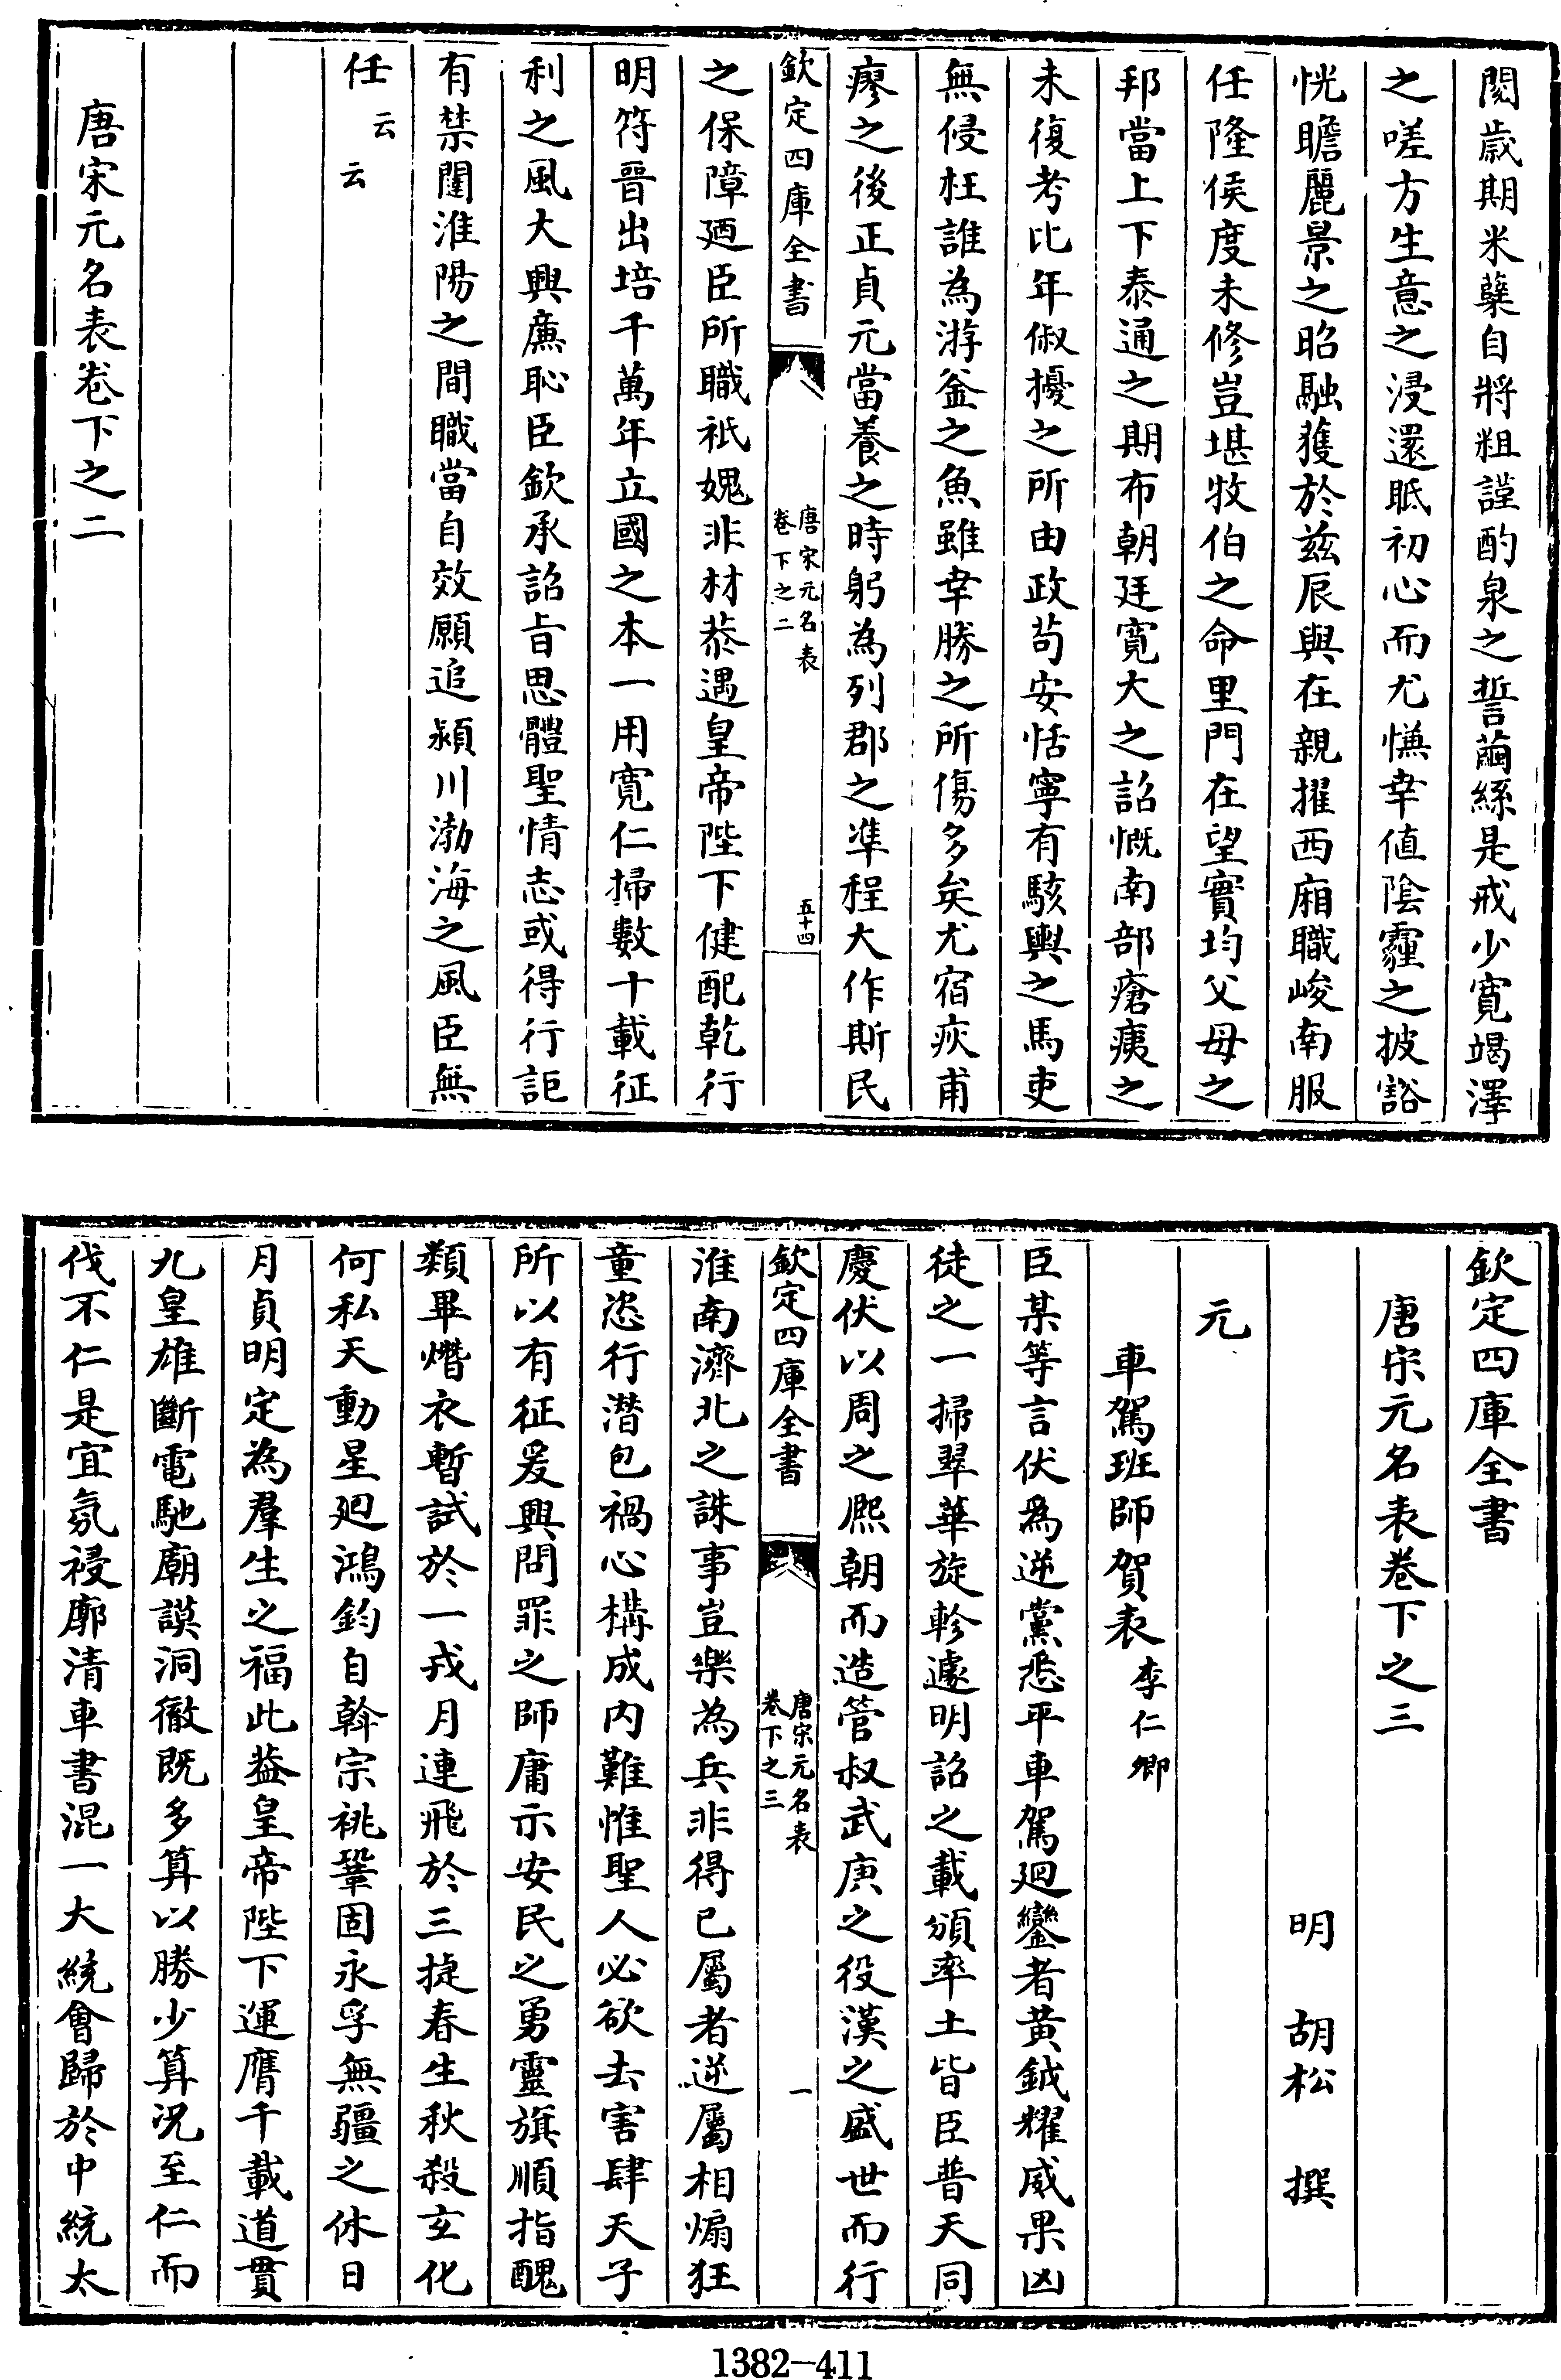 閱歳期米蘖自將粗謹酌泉之誓繭絲是戒少寛竭澤
之嗟方生意之浸還眡初心而尤慊幸值陰霾之披豁
恍瞻麗景之昭融獲於兹辰與在親擢西廂職峻南服
任隆侯度未修豈堪牧伯之命里門在望實均父母之
邦當上下泰通之期布朝廷寛大之詔慨南部瘡痍之
未復考比年俶擾之所由政苟安恬寧有駭輿之馬吏
無侵枉誰為游釡之魚雖幸勝之所傷多矣尤宿疢甫
瘳之後正貞元當養之時躬為列郡之凖程大作斯民
欽定四庫全書
唐宋元名表
卷下之二
五十四
之保障廼臣所職祇媿非材恭遇皇帝陛下健配乾行
明符晉出培千萬年立國之本一用寛仁掃數十載征
利之風大興亷恥臣欽承詔旨思體聖情志或得行詎
有禁闥淮陽之間職當自效願追潁川渤海之風臣無
任云云
唐宋元名表卷下之二
欽定四庫全書
唐宋元名表卷下之三
明 胡松 撰
元
車駕班師賀表李仁卿
臣某等言伏爲逆黨悉平車駕廻鑾者黄鉞耀威果凶
徒之一掃翠華旋軫遽明詔之載頒率土皆臣普天同
慶伏以周之熈朝而造管叔武庚之役漢之盛世而行
欽定四庫全書
唐宋元名表
卷下之三
一
淮南濟北之誅事豈樂為兵非得已屬者逆屬相煽狂
童恣行潛包禍心構成内難惟聖人必欲去害肆天子
所以有征爰興問罪之師庸示安民之勇靈旗順指醜
類畢熸衣暫試於一戎月連飛於三捷春生秋殺玄化
何私天動星廻鴻鈞自斡宗祧鞏固永孚無疆之休日
月貞明定為羣生之福此葢皇帝陛下運膺千載道貫
九皇雄斷電馳廟謨洞徹既多算以勝少算况至仁而
伐不仁是宜氛祲廓清車書混一大統會歸於中統太
1382-411